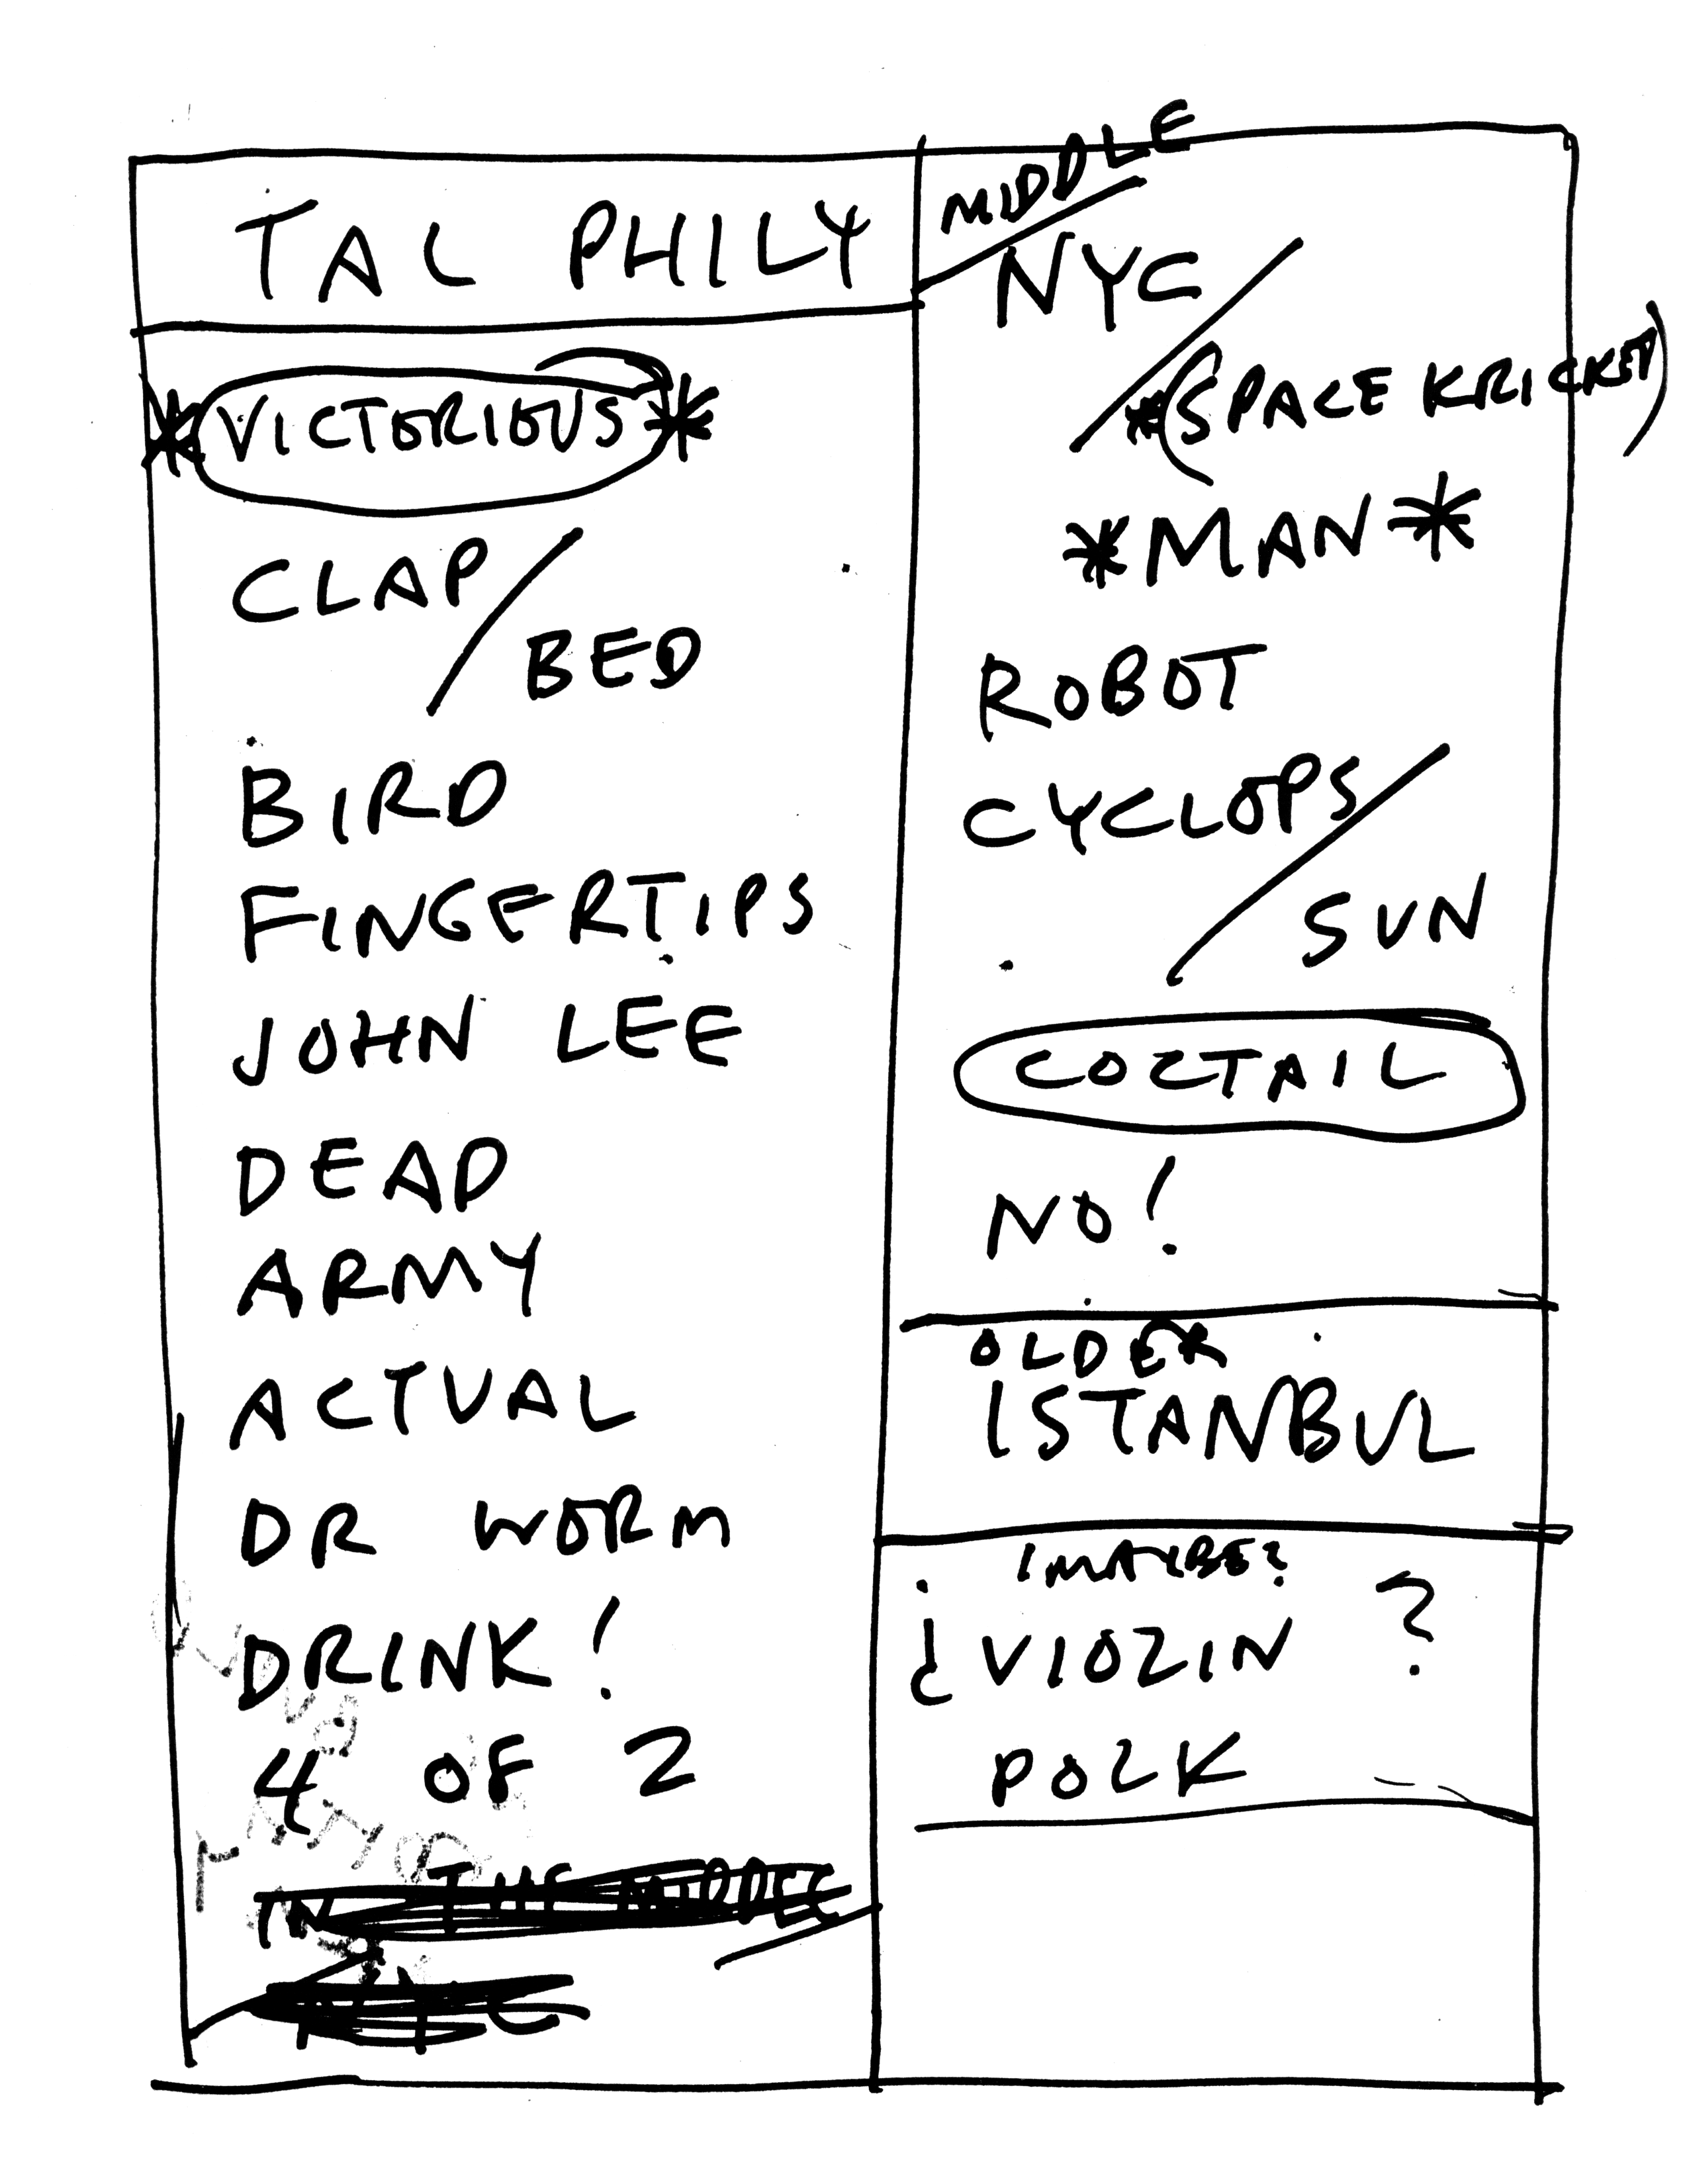 TAL PHILY
*VICTORIOUS*
CLAP/
BED
BIRD
FINGERTIPS
JOHN LEE
DEAD
ARMY
ACTUAL
DR WORM
DRINK!
4 OF 2
IN THE MIDDLE
NYC
MIDDLE/
NYC/
*(SPACE KRICKET)
*MAN*
ROBOT
CYCLOPS/
SUN
COZTAIL
NO!
OLDER
ISTANBUL
¡MAYBE?
¿VIOZIN?
POZK